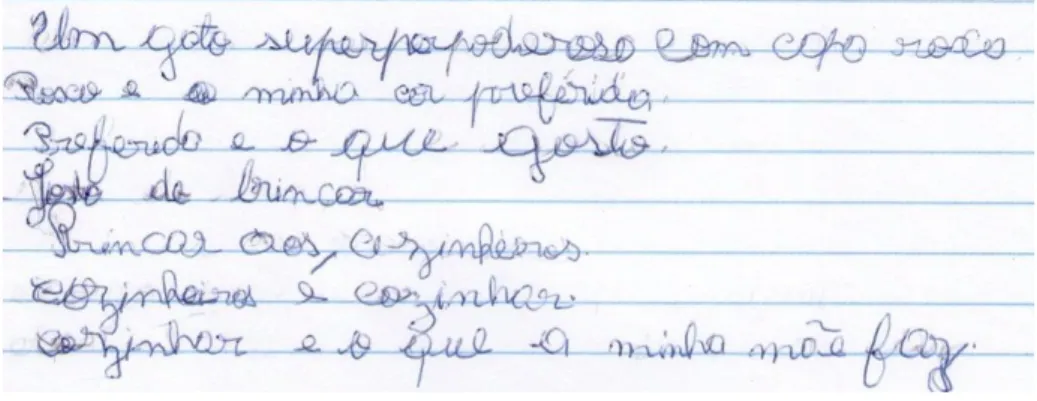 Um gato superperpoderoso com capa roxa
Roxo e a minha cor preférida.
Preferida e o que gosto.
Gosto de brincar
Brincar aos cozinheiros.
cozinheiros é cozinhar.
cozinhar e o que a minha mãe faz.